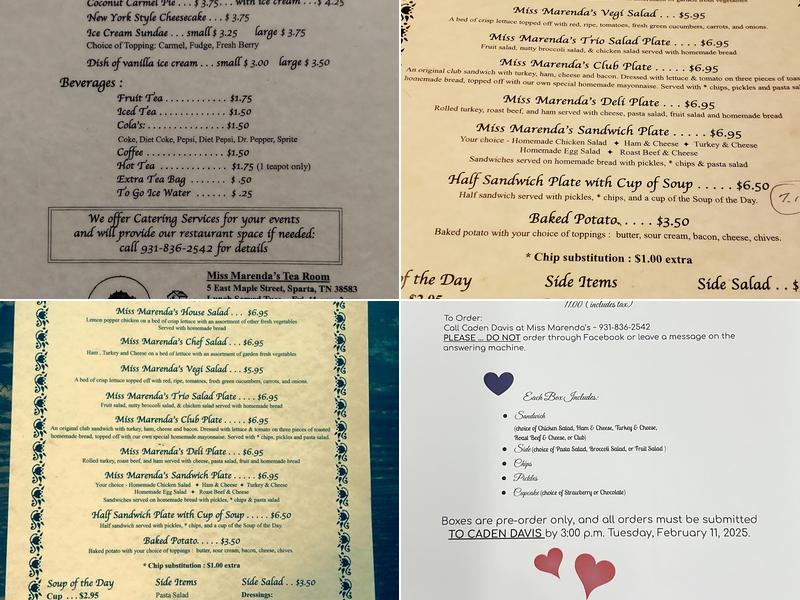 Coconut Carmel Pie ... $ 3.75... with ice cream ... $ 4.25
New York Style Cheesecake . . $ 3.75
Ice Cream Sundae ... small $ 3.25 large $ 3.75
Choice of Topping: Carmel, Fudge, Fresh Berry
Dish of vanilla ice cream . . . small $ 3.00 large $ 3.50
Beverages :
Fruit Tea . . . . . . . . . . . . $1.75
Iced Tea . . . . . . . . . . . . $1.50
Cola's: . . . . . . . . . . . . $1.50
Coke, Diet Coke, Pepsi, Diet Pepsi, Dr. Pepper, Sprite
Coffee . . . . . . . . . . . . . $1.50
Hot Tea . . . . . . . . . . . . $1.75 (1 teapot only)
Extra Tea Bag . . . . . . $ .50
To Go Ice Water . . . . . $ .25
We offer Catering Services for your events
and will provide our restaurant space if needed:
call 931-836-2542 for details
Miss Marenda's Tea Room
5 East Maple Street, Sparta, TN 38583
Miss Marenda's Vegi Salad . . . $5.95
A bed of crisp lettuce topped off with red, ripe, tomatoes, fresh green cucumbers, carrots, and onions.
Miss Marenda's Trio Salad Plate . . . . $6.95
Fruit salad, nutty broccoli salad, & chicken salad served with homemade bread
Miss Marenda's Club Plate . . . . $6.95
An original club sandwich with turkey, ham, cheese and bacon. Dressed with lettuce & tomato on three pieces of toas
homemade bread, topped off with our own special homemade mayonnaise. Served with * chips, pickles and pasta sa
Miss Marenda's Deli Plate . . . $6.95
Rolled turkey, roast beef, and ham served with cheese, pasta salad, fruit salad and homemade bread
Miss Marenda's Sandwich Plate . . . . . $6.95
Your choice - Homemade Chicken Salad ✦ Ham & Cheese ✦ Turkey & Cheese
Homemade Egg Salad ✦ Roast Beef & Cheese
Sandwiches served on homemade bread with pickles, * chips & pasta salad
Half Sandwich Plate with Cup of Soup . . . . . $6.50
Half sandwich served with pickles, * chips, and a cup of the Soup of the Day.
Baked Potato. . . . . $3.50
Baked potato with your choice of toppings : butter, sour cream, bacon, cheese, chives.
* Chip substitution : $1.00 extra
f the Day Side Items Side Salad . . $
Miss Marenda's House Salad . . . $6.95
Lemon pepper chicken on a bed of crisp lettuce with an assortment of other fresh vegetables
Served with homemade bread
Miss Marenda's Chef Salad . . . $6.95
Ham , Turkey and Cheese on a bed of lettuce with an assortment of garden fresh vegetables
Miss Marenda's Vegi Salad . . . $5.95
A bed of crisp lettuce topped off with red, ripe, tomatoes, fresh green cucumbers, carrots, and onions.
Miss Marenda's Trio Salad Plate . . . . $6.95
Fruit salad, nutty broccoli salad, & chicken salad served with homemade bread
Miss Marenda's Club Plate . . . . $6.95
An original club sandwich with turkey, ham, cheese and bacon. Dressed with lettuce & tomato on three pieces of toasted
homemade bread, topped off with our own special homemade mayonnaise. Served with * chips, pickles and pasta salad.
Miss Marenda's Deli Plate . . . $6.95
Rolled turkey, roast beef, and ham served with cheese, pasta salad, fruit and homemade bread
Miss Marenda's Sandwich Plate . . . . . $6.95
Your choice - Homemade Chicken Salad ✦ Ham & Cheese ✦ Turkey & Cheese
Homemade Egg Salad ✦ Roast Beef & Cheese
Sandwiches served on homemade bread with pickles, * chips & pasta salad
Half Sandwich Plate with Cup of Soup . . . . . $6.50
Half sandwich served with pickles, * chips, and a cup of the Soup of the Day.
Baked Potato. . . . . $3.50
Baked potato with your choice of toppings : butter, sour cream, bacon, cheese, chives.
* Chip substitution : $1.00 extra
Soup of the Day Side Items Side Salad . . $3.50
Cup . . . $2.95 Pasta Salad Dressings:
11.00 (includes tax)
To Order:
Call Caden Davis at Miss Marenda's - 931-836-2542
PLEASE ... DO NOT order through Facebook or leave a message on the
answering machine.
Each Box Includes:
• Sandwich
(choice of Chicken Salad, Ham & Cheese, Turkey & Cheese,
Roast Beef & Cheese, or Club)
• Side (choice of Pasta Salad, Broccoli Salad, or Fruit Salad )
• Chips
• Pickles
• Cupcake (choice of Strawberry or Chocolate)
Boxes are pre-order only, and all orders must be submitted
TO CADEN DAVIS by 3:00 p.m. Tuesday, February 11, 2025.